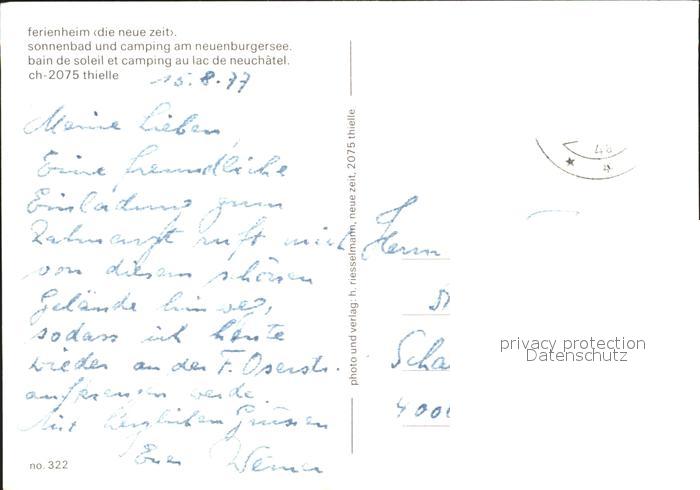 ferienheim ‹die neue zeit›.
sonnenbad und camping am neuenburgersee.
bain de soleil et camping au lac de neuchâtel.
ch-2075 thielle
15.8.77
Meine Lieben,
Eine freundliche
Einladung zum
Zahnarzt ruft mich
von diesem schönen
Gelände hinweg,
sodass ich heute
wieder an der F.
werde.
Mit herzlichen Grüssen
Euer Werner
no. 322
photo und verlag: h. riesselmann, neue zeit, 2075 thielle
Herrn
Scha
4000
48
privacy protection
Datenschutz